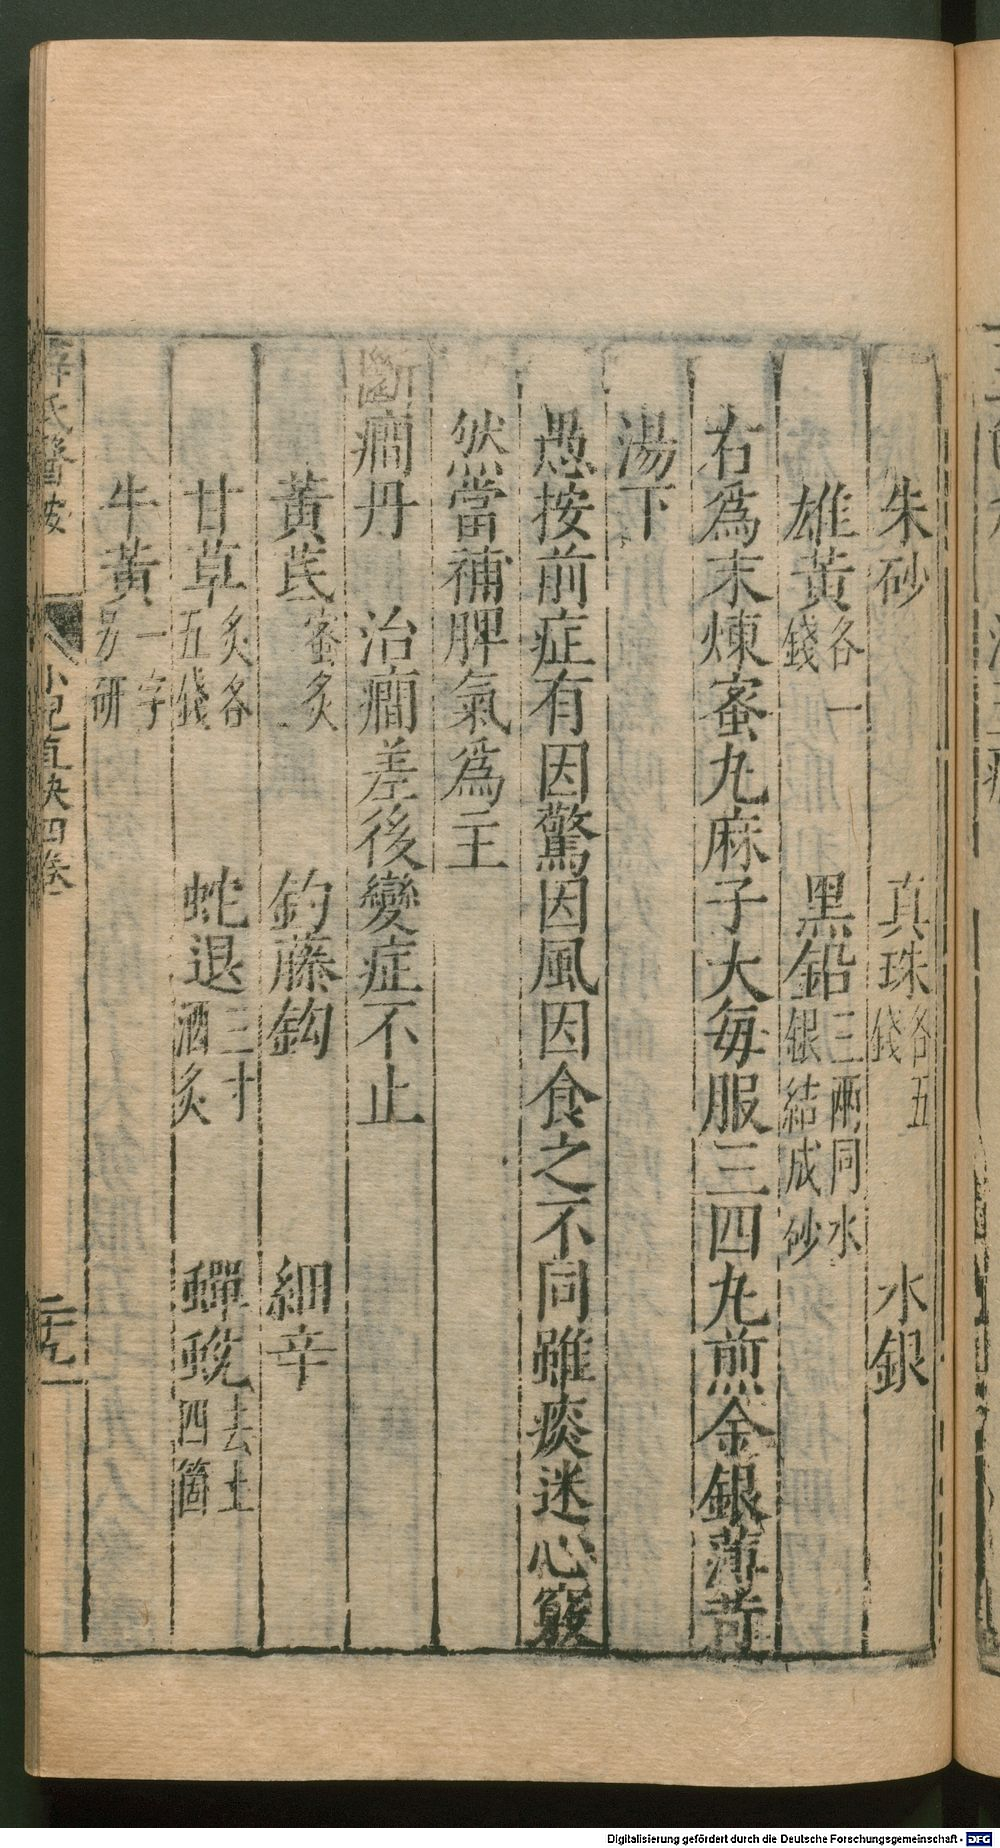 朱砂 真珠各五錢 水銀
雄黃各一錢 黑鉛三兩同水銀結成砂
右爲末煉蜜丸麻子大每服三四丸煎金銀薄荷
湯下
愚按前症有因驚因風因食之不同雖痰迷心竅
然當補脾氣爲主
斷癇丹 治癇差後變症不止
黃芪蜜炙 釣藤鈎 細辛
甘草炙各五錢 蛇退三寸酒炙 蟬蛻去土四箇
牛黃一字另研
薛氏醫按 小兒直訣四卷 二十九
Digitalisierung gefördert durch die Deutsche Forschungsgemeinschaft - DFG